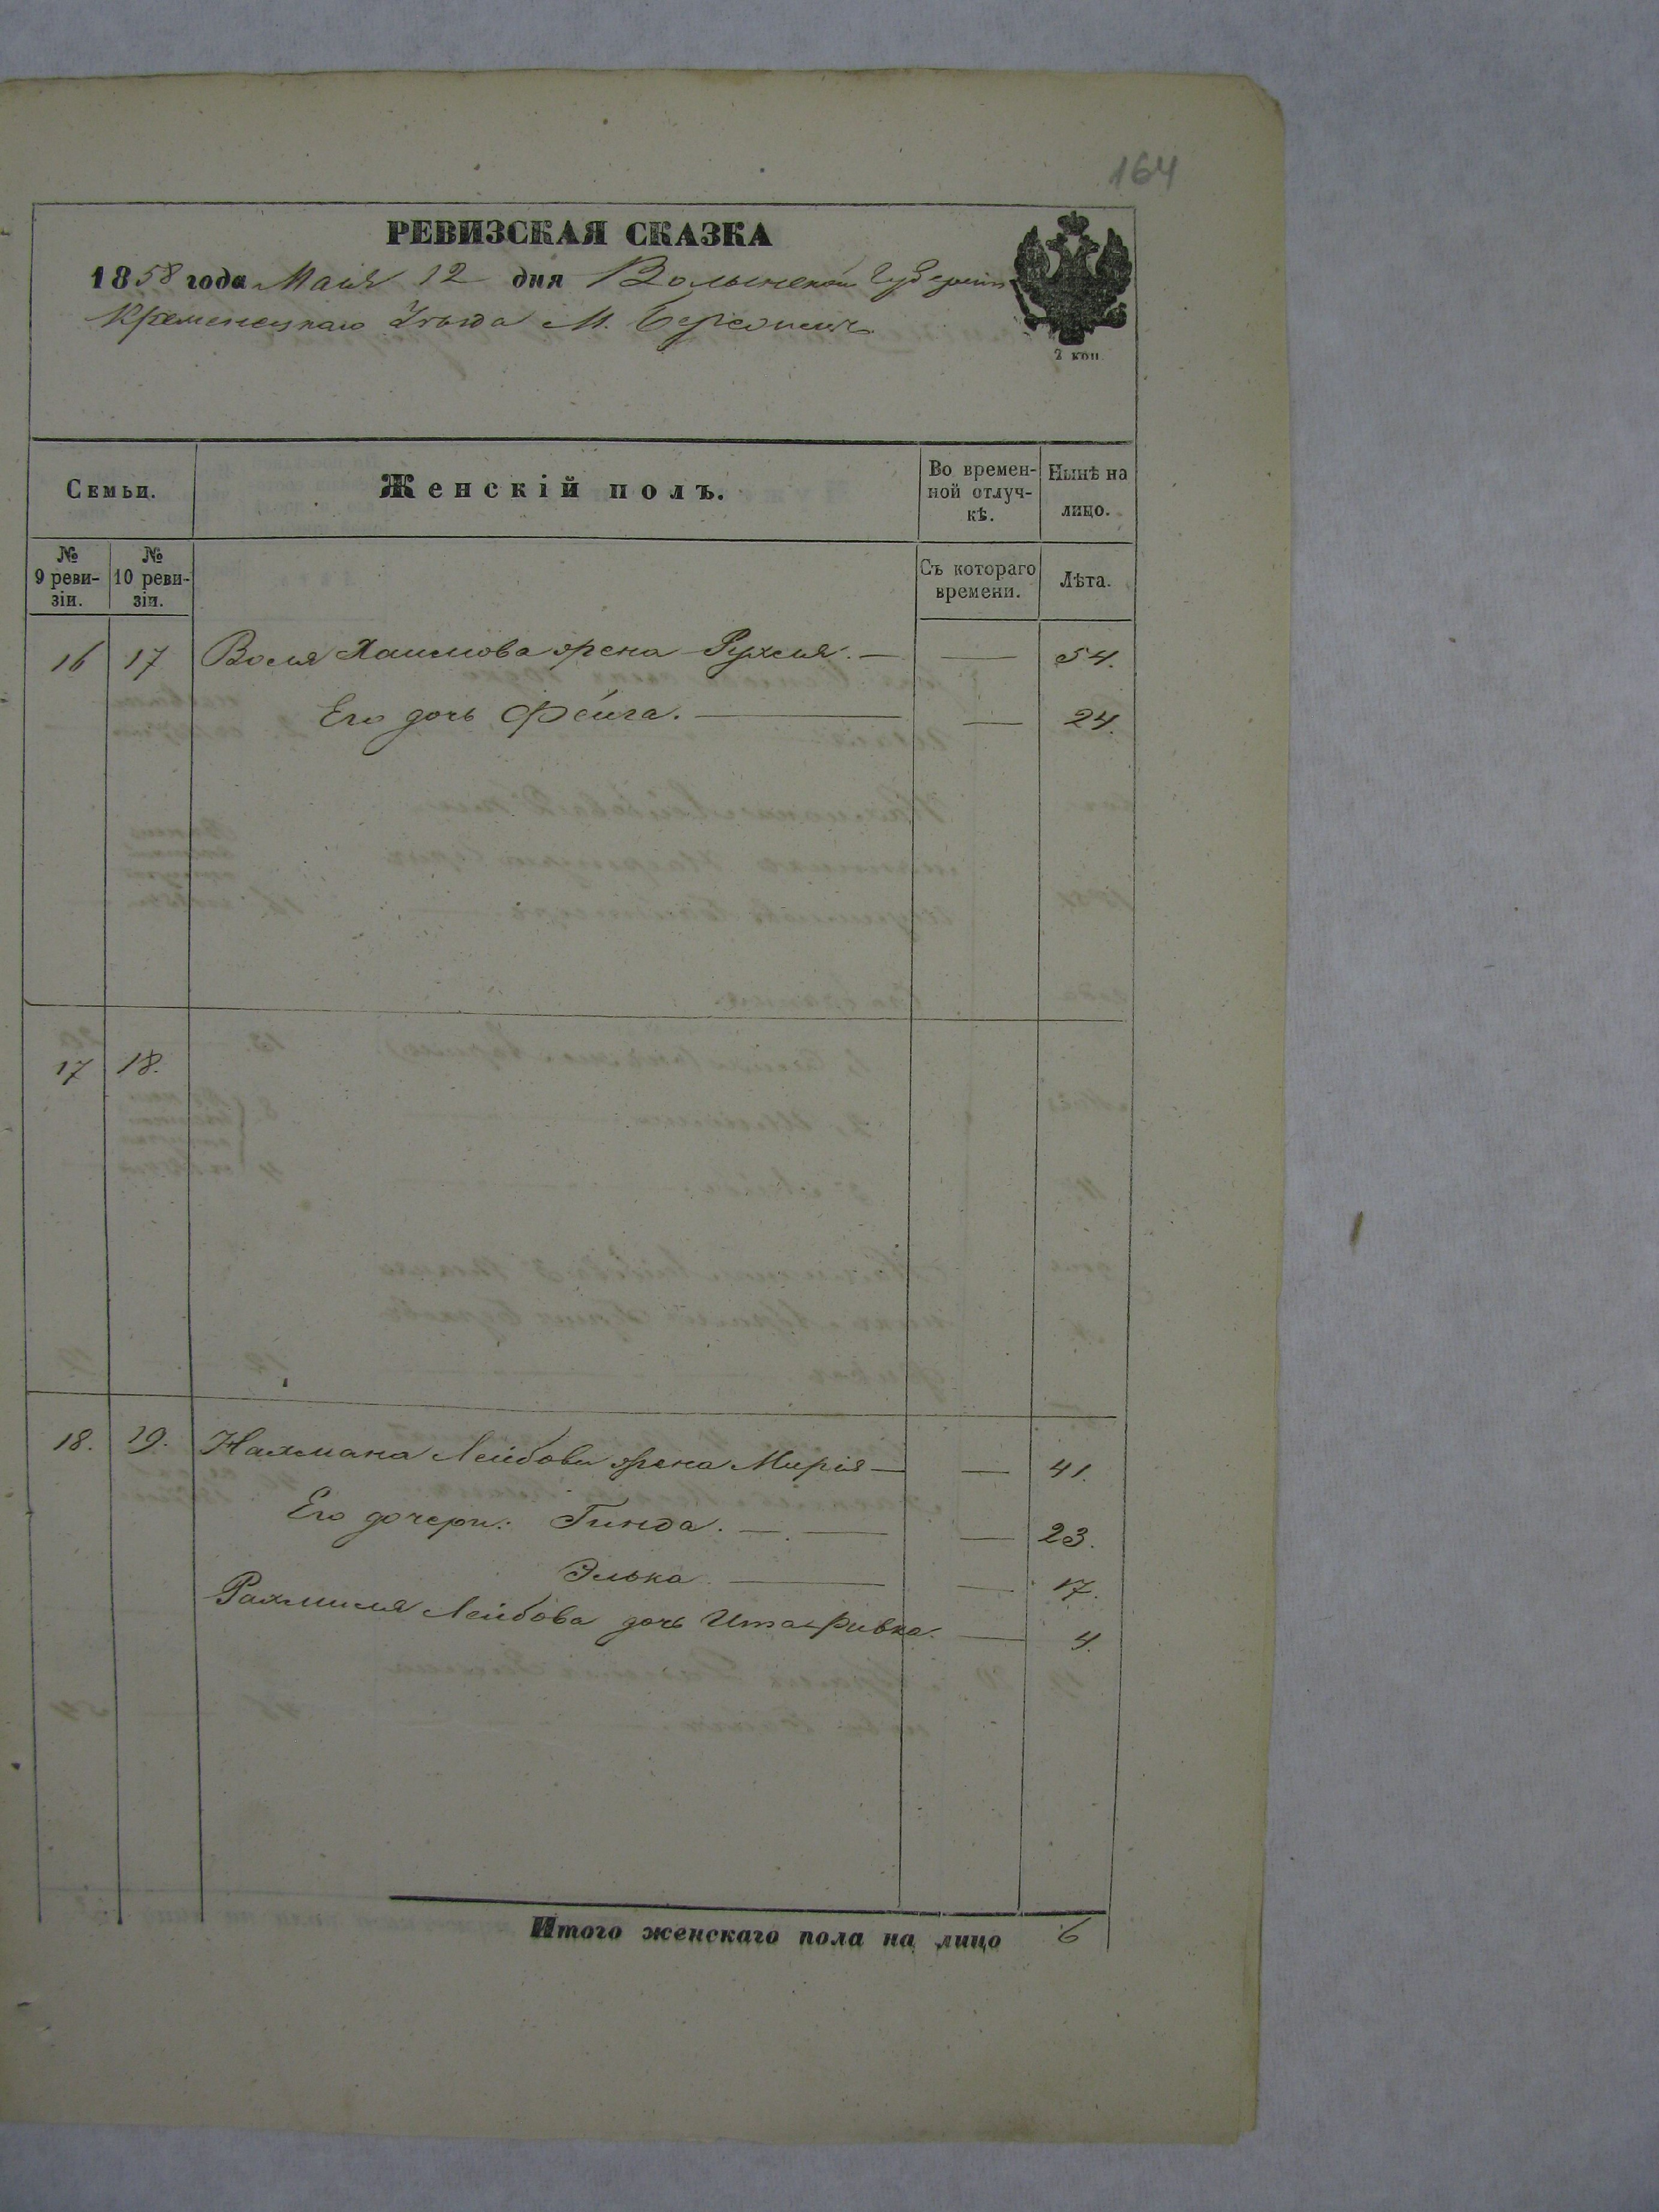 164
РЕВИЗСКАЯ СКАЗКА
1858 года Маія 12 дня Волынской Губерніи
Кременецкаго Уѣзда М. Бережецъ
2 коп.
Семьи. Женскій полъ. Во времен-ной отлуч-кѣ. Нынѣ на лицо.
№ 9 реви-зіи. № 10 реви-зіи. Съ котораго времени. Лѣта.
16 17 Воля Хаимова жена Рухля. — — 54.
Его дочь Фейга. — — 24.
17 18.
18. 19. Нахмана Лейбова жена Мирія — — 41.
Его дочери: Гинда. — — — 23.
Элька — — 17.
Рахмиля Лейбова дочь Ита-Ривка. — 4.
Итого женскаго пола на лицо 6